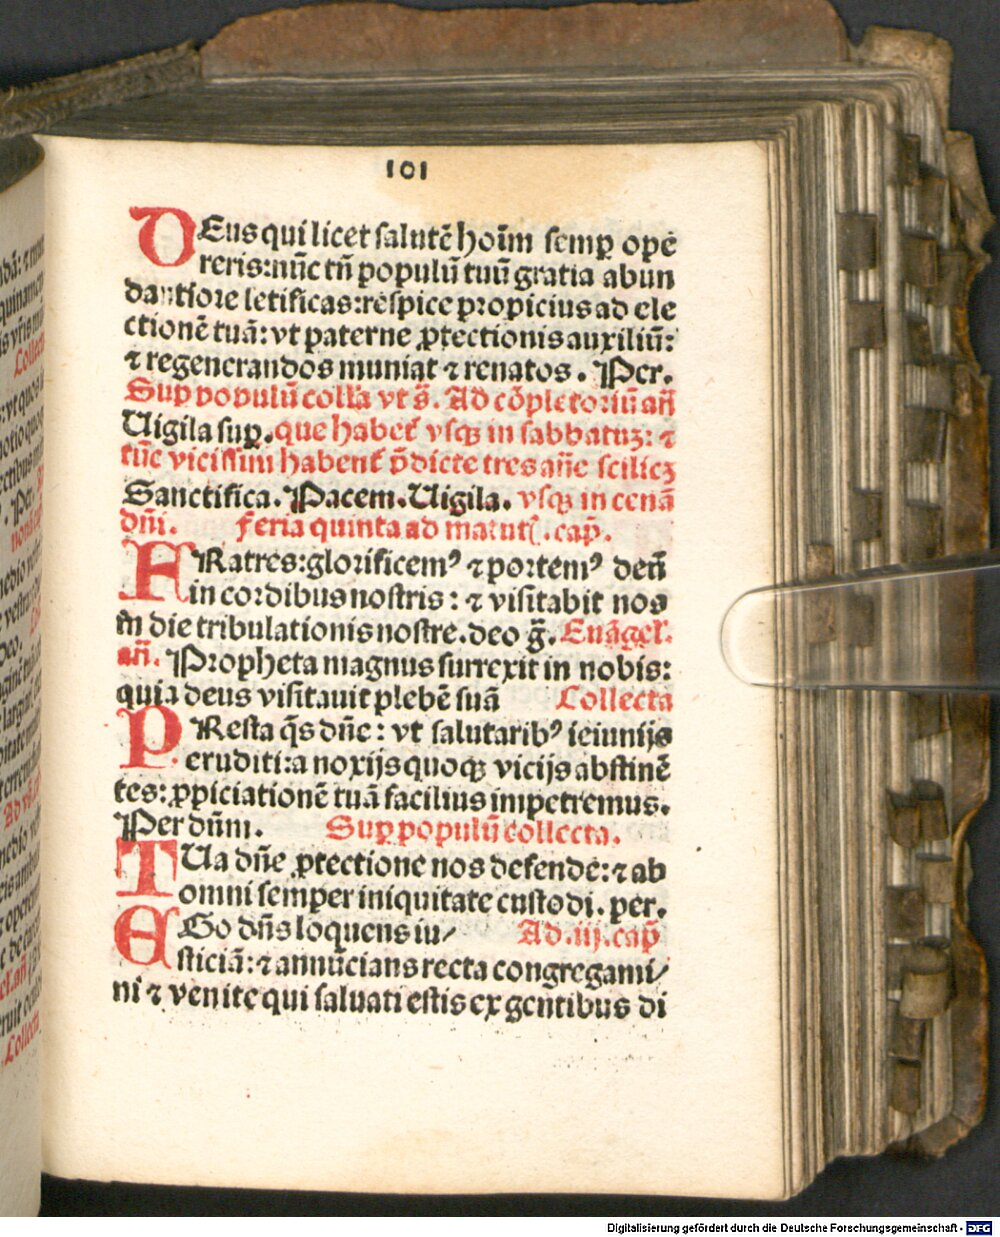 101
DEus qui licet salutē hoīm semꝑ ope
reris: nūc tn̄ populū tuū gratia abun
dantiore letificas: respice propicius ad ele
ctionē tuā: vt paterne ꝓtectionis auxiliū:
⁊ regenerandos muniat ⁊ renatos. Per.
Sup populū coll̄a vt s̄. Ad cōpletoriū an̄
Uigila suꝑ. que habet᷑ vsqꝫ in sabbatuꝫ: ⁊
tūc vicissim habent᷑ p̄dicte tres an̄e scilicꝫ
Sanctifica. Pacem. Uigila. vsqꝫ in cenā
dn̄i. feria quinta ad matut̄. cap̄.
FRatres: glorificemꝰ ⁊ portemꝰ deū
in cordibus nostris: ⁊ visitabit nos
in die tribulationis nostre. deo g̅. Euāgel̄.
an̄. Propheta magnus surrexit in nobis:
quia deus visitauit plebē suā Collecta
PResta q̄s dn̄e: vt salutaribꝰ ieiunijs
eruditi: a noxijs quoqꝫ vicijs abstinē
tes: ꝓpiciationē tuā facilius impetremus.
Per dn̄m. Suꝑ populū collecta.
TUa dn̄e ꝓtectione nos defende: ⁊ ab
omni semper iniquitate custodi. per.
EGo dn̄s loquens iu/ Ad .iij. cap̄
sticiā: ⁊ annūcians recta congregami/
ni ⁊ venite qui saluati estis ex gentibus di
Collecta
Collect
Digitalisierung gefördert durch die Deutsche Forschungsgemeinschaft - DFG